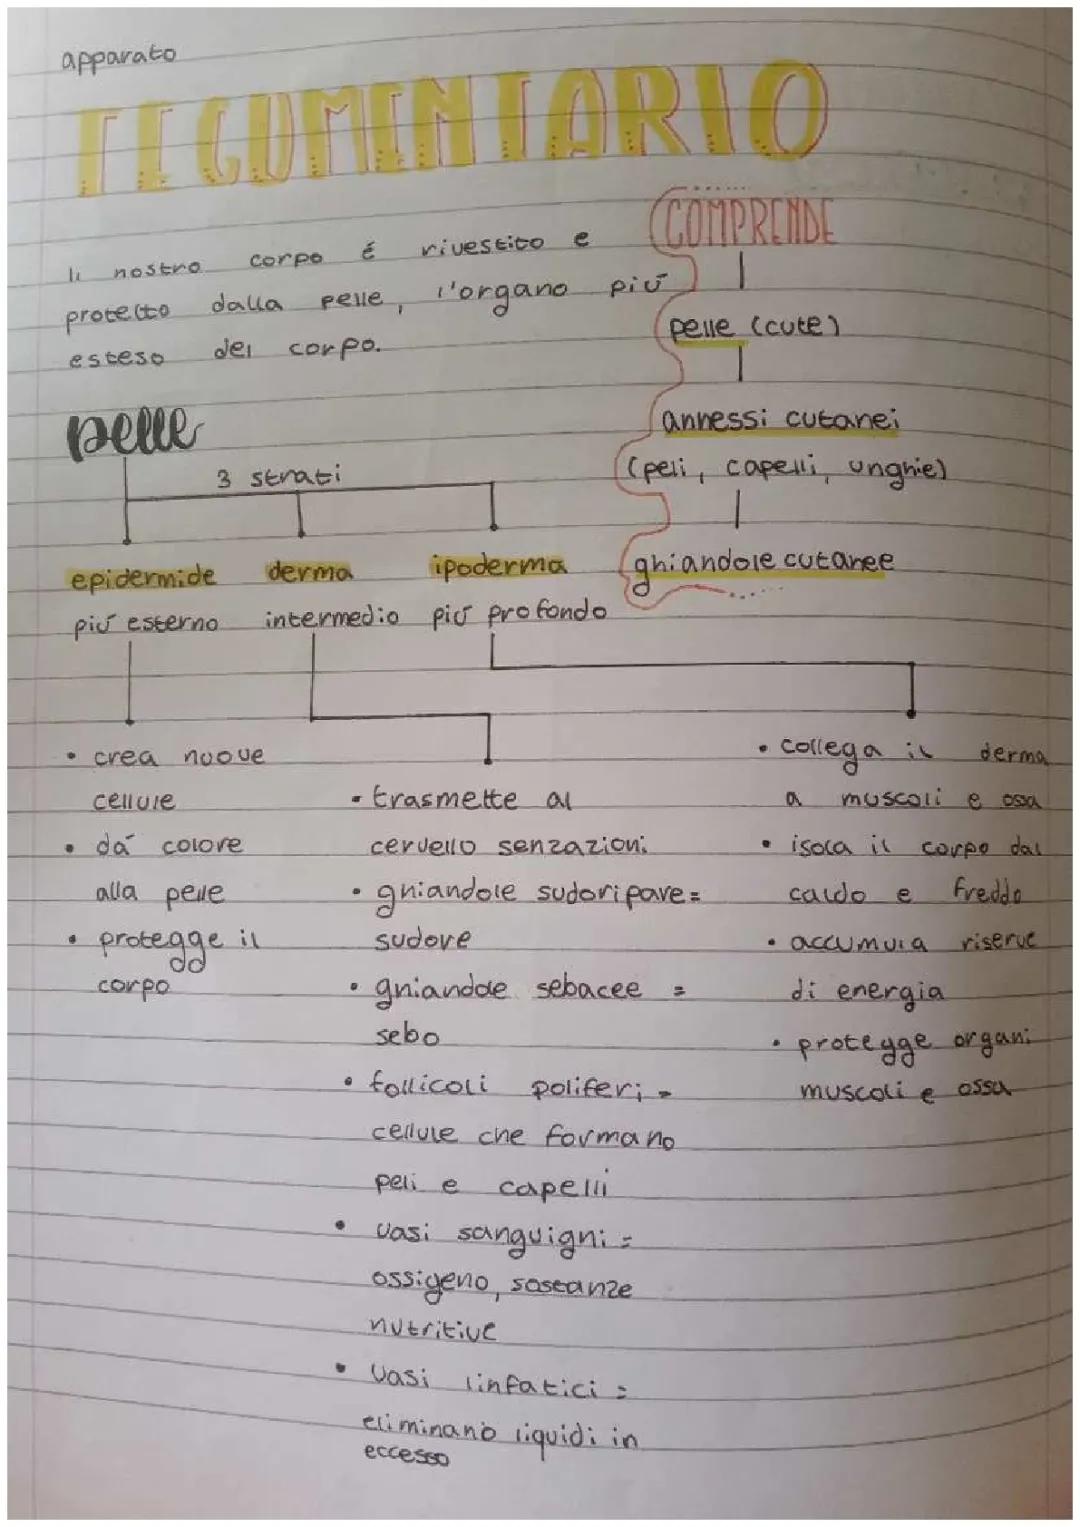 apparato
TEGUMENTARIO
Il nostro corpo é rivestito e
protetto dalla pelle, l'organo piú
esteso del corpo.
COMPRENDE
pelle (cute)
annessi cutanei
(peli, capelli, unghie)
ghiandole cutanee
pelle
3 strati
epidermide derma ipoderma
piú esterno intermedio piú profondo
• crea nuove
cellule
• dá colore
alla pelle
• protegge il
corpo
• trasmette al
cervello senzazioni
• ghiandole sudoripare =
sudore
• ghiandole sebacee =
sebo
• follicoli poliferi =
cellule che formano
peli e capelli
• vasi sanguigni =
ossigeno, sostanze
nutritive
• vasi linfatici =
eliminano liquidi in
eccesso
• collega il derma
a muscoli e ossa
• isola il corpo dal
caldo e freddo
• accumula riserve
di energia
• protegge organi
muscoli e ossa